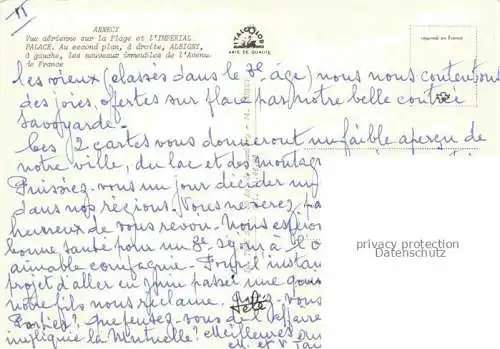 II
ANNECY
Vue aérienne sur la Plage et l'IMPERIAL
PALACE. Au second plan, à droite, ALBIGNY,
à gauche, les nouveaux immeubles de l'Avenue
de France
ITALCOLOR
AVIS DE QUALITÉ
Imprimé en France
les vieux (classés dans le 3e âge) nous nous contentons
des joies, offertes sur place par notre belle contrée
savoyarde.
Ces 2 cartes vous donneront un faible aperçu de
notre ville, du lac et des montag
Puissiez-vous un jour décider un
dans nos régions. Vous ne serez pa
heureux de vous revoir. Nous espéron
bonne santé pour un 8e séjour à l'a
aimable compagnie. Pour l'instan
projet d'aller en Juin passer une quin
notre fils nous réclame. Êtes-vous
Que pensez-vous de l'affaire
la Mutuelle? Meilleures am
M. et V. Tan
privacy protection
Datenschutz